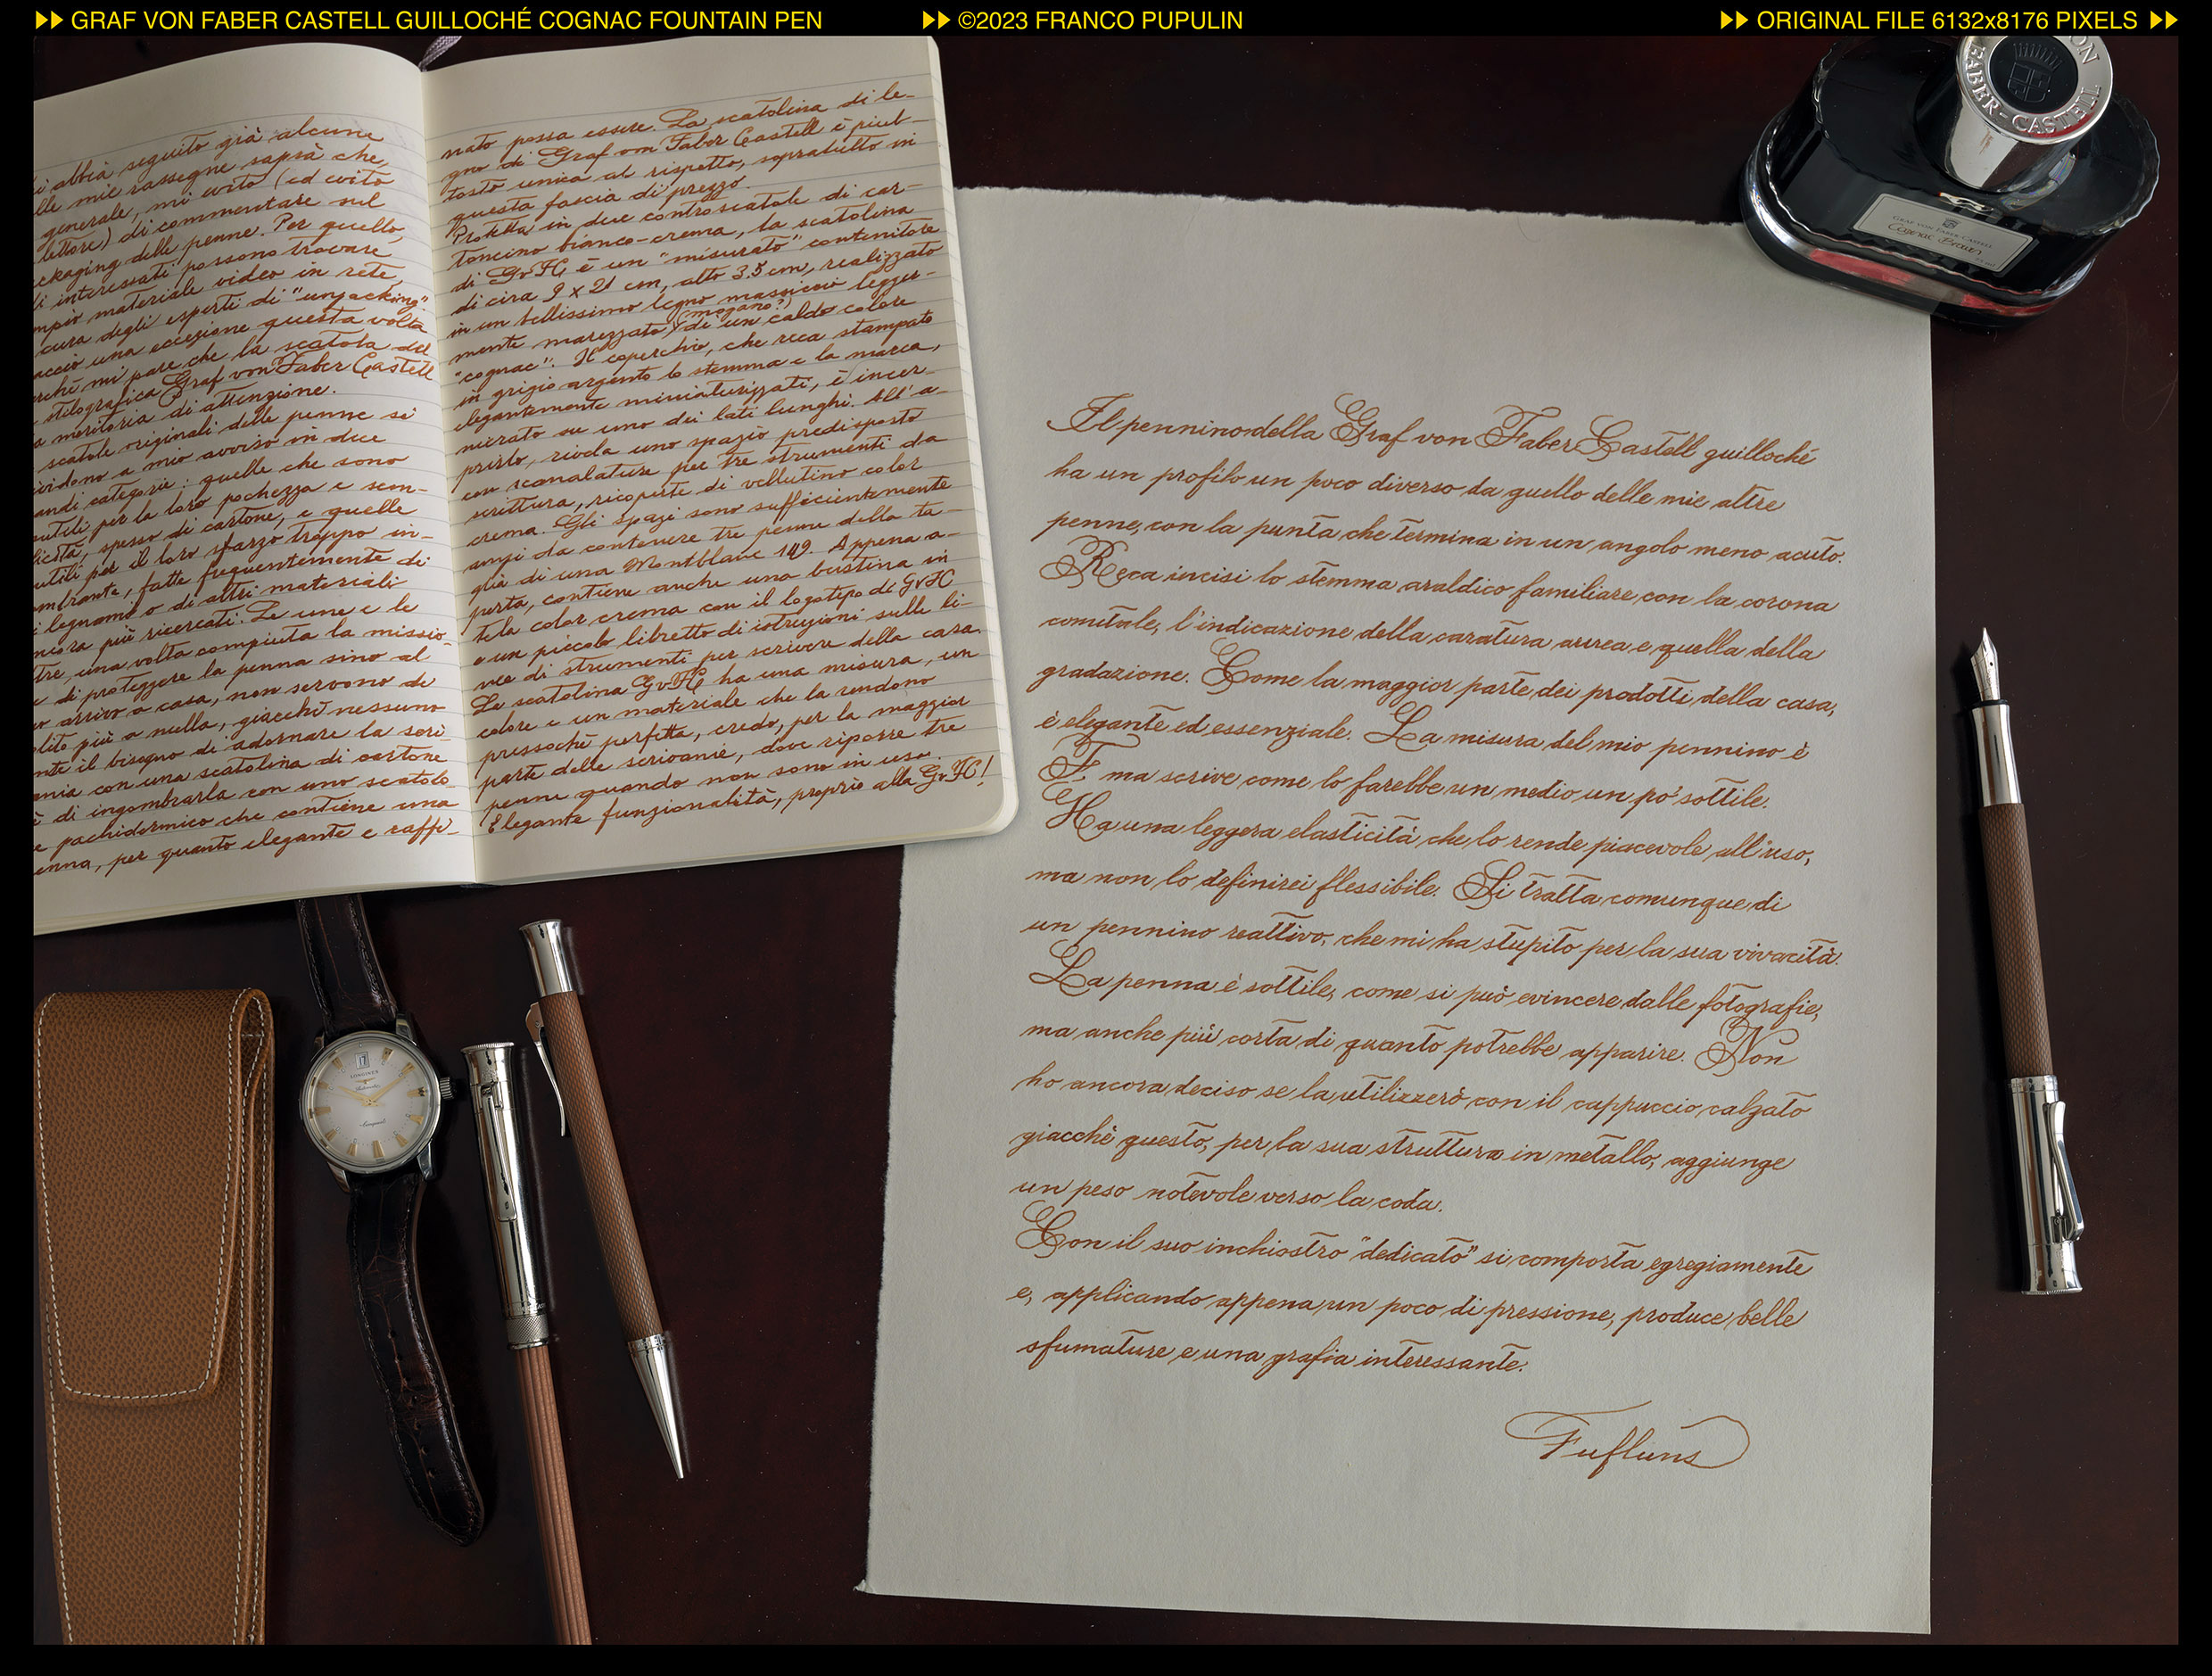 GRAF VON FABER CASTELL GUILLOCHÉ COGNAC FOUNTAIN PEN
©2023 FRANCO PUPULIN
ORIGINAL FILE 6132x8176 PIXELS
abbia seguito già alcune
mie rassegne saprà che,
generale, mi evito (ed evito
lettore) di commentare sul
delle penne. Per quello,
interessati possono trovare
materiale video in rete,
cura degli esperti di "unpacking"
una eccezione questa volta
mi pare che la scatola del
stilografica Graf von Faber Castell
meritoria di attenzione.
scatole originali delle penne si
a mio avviso in due
categorie: quelle che sono
per la loro pochezza e sem-
spesso di cartone, e quelle
per il loro sforzo troppo in-
fatte frequentemente di
legname o di altri materiali
più ricercati. Le une e le
una volta compiuta la missio-
di proteggere la penna sino al
arrivo a casa, non servono de
più a nulla, giacché nessuno
il bisogno di adornare la scri-
con una scatolina di cartone
di ingombrarla con uno scatolo-
pachidermico che contiene una
per quanto elegante e raffi-
nato possa essere. La scatolina di le-
gno di Graf von Faber Castell è piut-
tosto unica al rispetto, sopratutto in
questa fascia di prezzo.
Protetta in due controscatole di car-
toncino bianco-crema, la scatolina
di GvFC è un "misurato" contenitore
di circa 9 x 21 cm, alto 3.5 cm, realizzato
in un bellissimo legno massiccio legger-
mente marezzato (mogano?) di un caldo colore
"cognac". Il coperchio, che reca stampato
in grigio argento lo stemma e la marca,
elegantemente miniaturizzati, è incer-
nierato su uno dei lati lunghi. All'a-
prirlo, rivela uno spazio predisposto
con scanalature per tre strumenti da
scrittura, ricoperte di vellutino color
crema. Gli spazi sono sufficientemente
ampi da contenere tre penne della ta-
glia di una Montblanc 149. Appena a-
perta, contiene anche una bustina in
tela color crema con il logotipo di GvFC
e un piccolo libretto di istruzioni sulle li-
nee di strumenti per scrivere della casa.
La scatolina GvFC ha una misura, un
colore e un materiale che la rendono
pressoché perfetta, credo, per la maggior
parte delle scrivanie, dove riporre tre
penne quando non sono in uso.
Elegante funzionalità, proprio alla GvFC!
VON FABER-CASTELL
GRAF VON FABER-CASTELL
Cognac Brown
Il pennino della Graf von Faber Castell guilloché
ha un profilo un poco diverso da quello delle mie altre
penne, con la punta che termina in un angolo meno acuto.
Reca incisi lo stemma araldico familiare con la corona
comitale, l'indicazione della caratura aurea e quella della
gradazione. Come la maggior parte dei prodotti della casa,
è elegante ed essenziale. La misura del mio pennino è
F, ma scrive come lo farebbe un medio un po' sottile.
Ha una leggera elasticità che lo rende piacevole all'uso,
ma non lo definirei flessibile. Si tratta comunque di
un pennino reattivo, che mi ha stupito per la sua vivacità.
La penna è sottile, come si può evincere dalle fotografie,
ma anche più corta di quanto potrebbe apparire. Non
ho ancora deciso se la utilizzerò con il cappuccio calzato
giacchè questo, per la sua struttura in metallo, aggiunge
un peso notevole verso la coda.
Con il suo inchiostro "dedicato" si comporta egregiamente
e, applicando appena un poco di pressione, produce belle
sfumature e una grafia interessante.
Fufluns
17
LONGINES
Automatic
Conquest